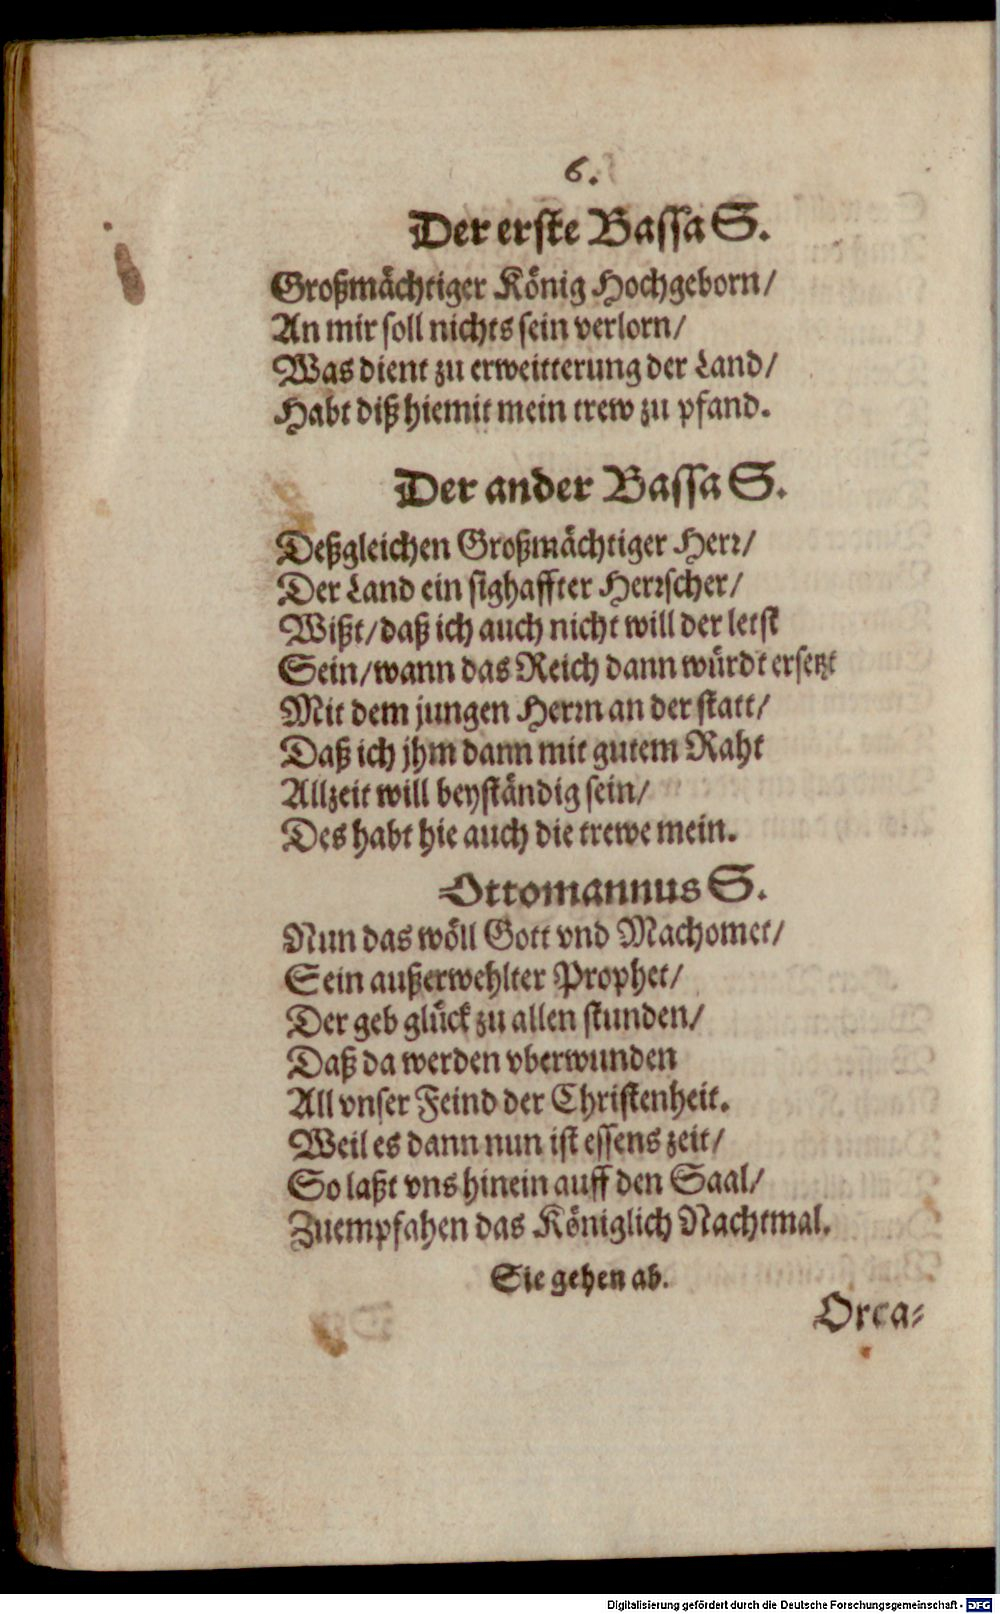 6.
Der erste Bassa S.
Großmächtiger König Hochgeborn/
An mir soll nichts sein verlorn/
Was dient zu erweitterung der Land/
Habt diß hiemit mein trew zu pfand.
Der ander Bassa S.
Deßgleichen Großmächtiger Herr/
Der Land ein sighaffter Herrscher/
Wißt/ daß ich auch nicht will der letst
Sein/ wann das Reich dann würdt ersetzt
Mit dem jungen Herrn an der statt/
Daß ich jhm dann mit gutem Raht
Allzeit will beyständig sein/
Des habt hie auch die trewe mein.
Ottomannus S.
Nun das wöll Gott vnd Machomet/
Sein außerwehlter Prophet/
Der geb glück zu allen stunden/
Daß da werden vberwunden
All vnser Feind der Christenheit.
Weil es dann nun ist essens zeit/
So laßt vns hinein auff den Saal/
Zuempfahen das Königlich Nachtmal.
Sie gehen ab.
Orca⸗
Digitalisierung gefördert durch die Deutsche Forschungsgemeinschaft - DFG